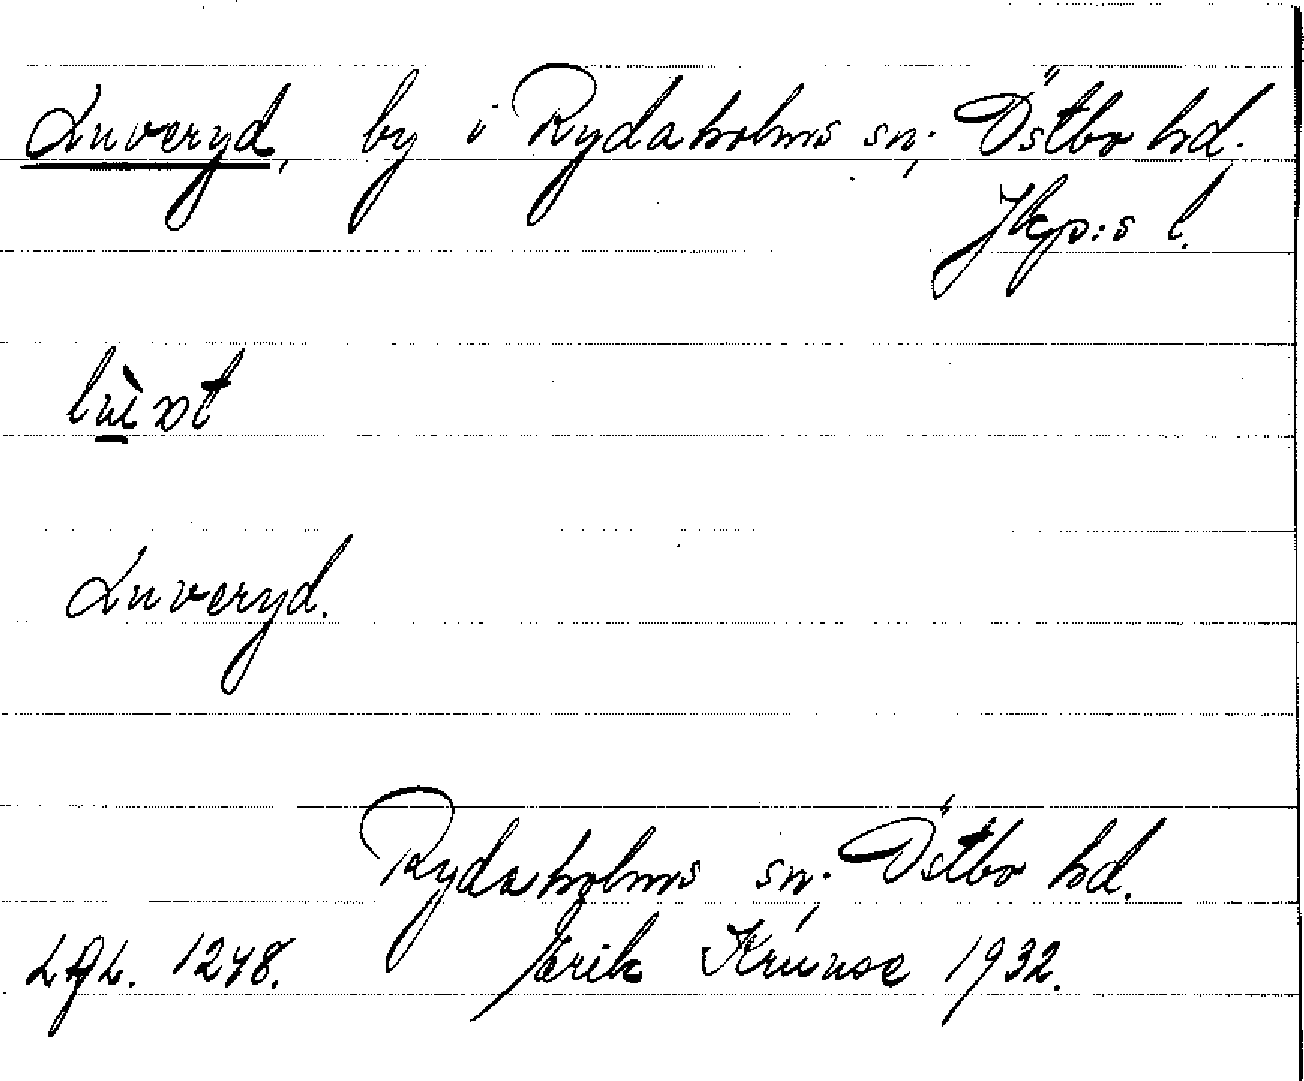 Luveryd, by i Rydaholms sn, Östbo hd.
Jkp:s l.
Luveryd.
Rydaholms sn, Östbo hd.
LGL. 1248. Erik Krúuse 1932.